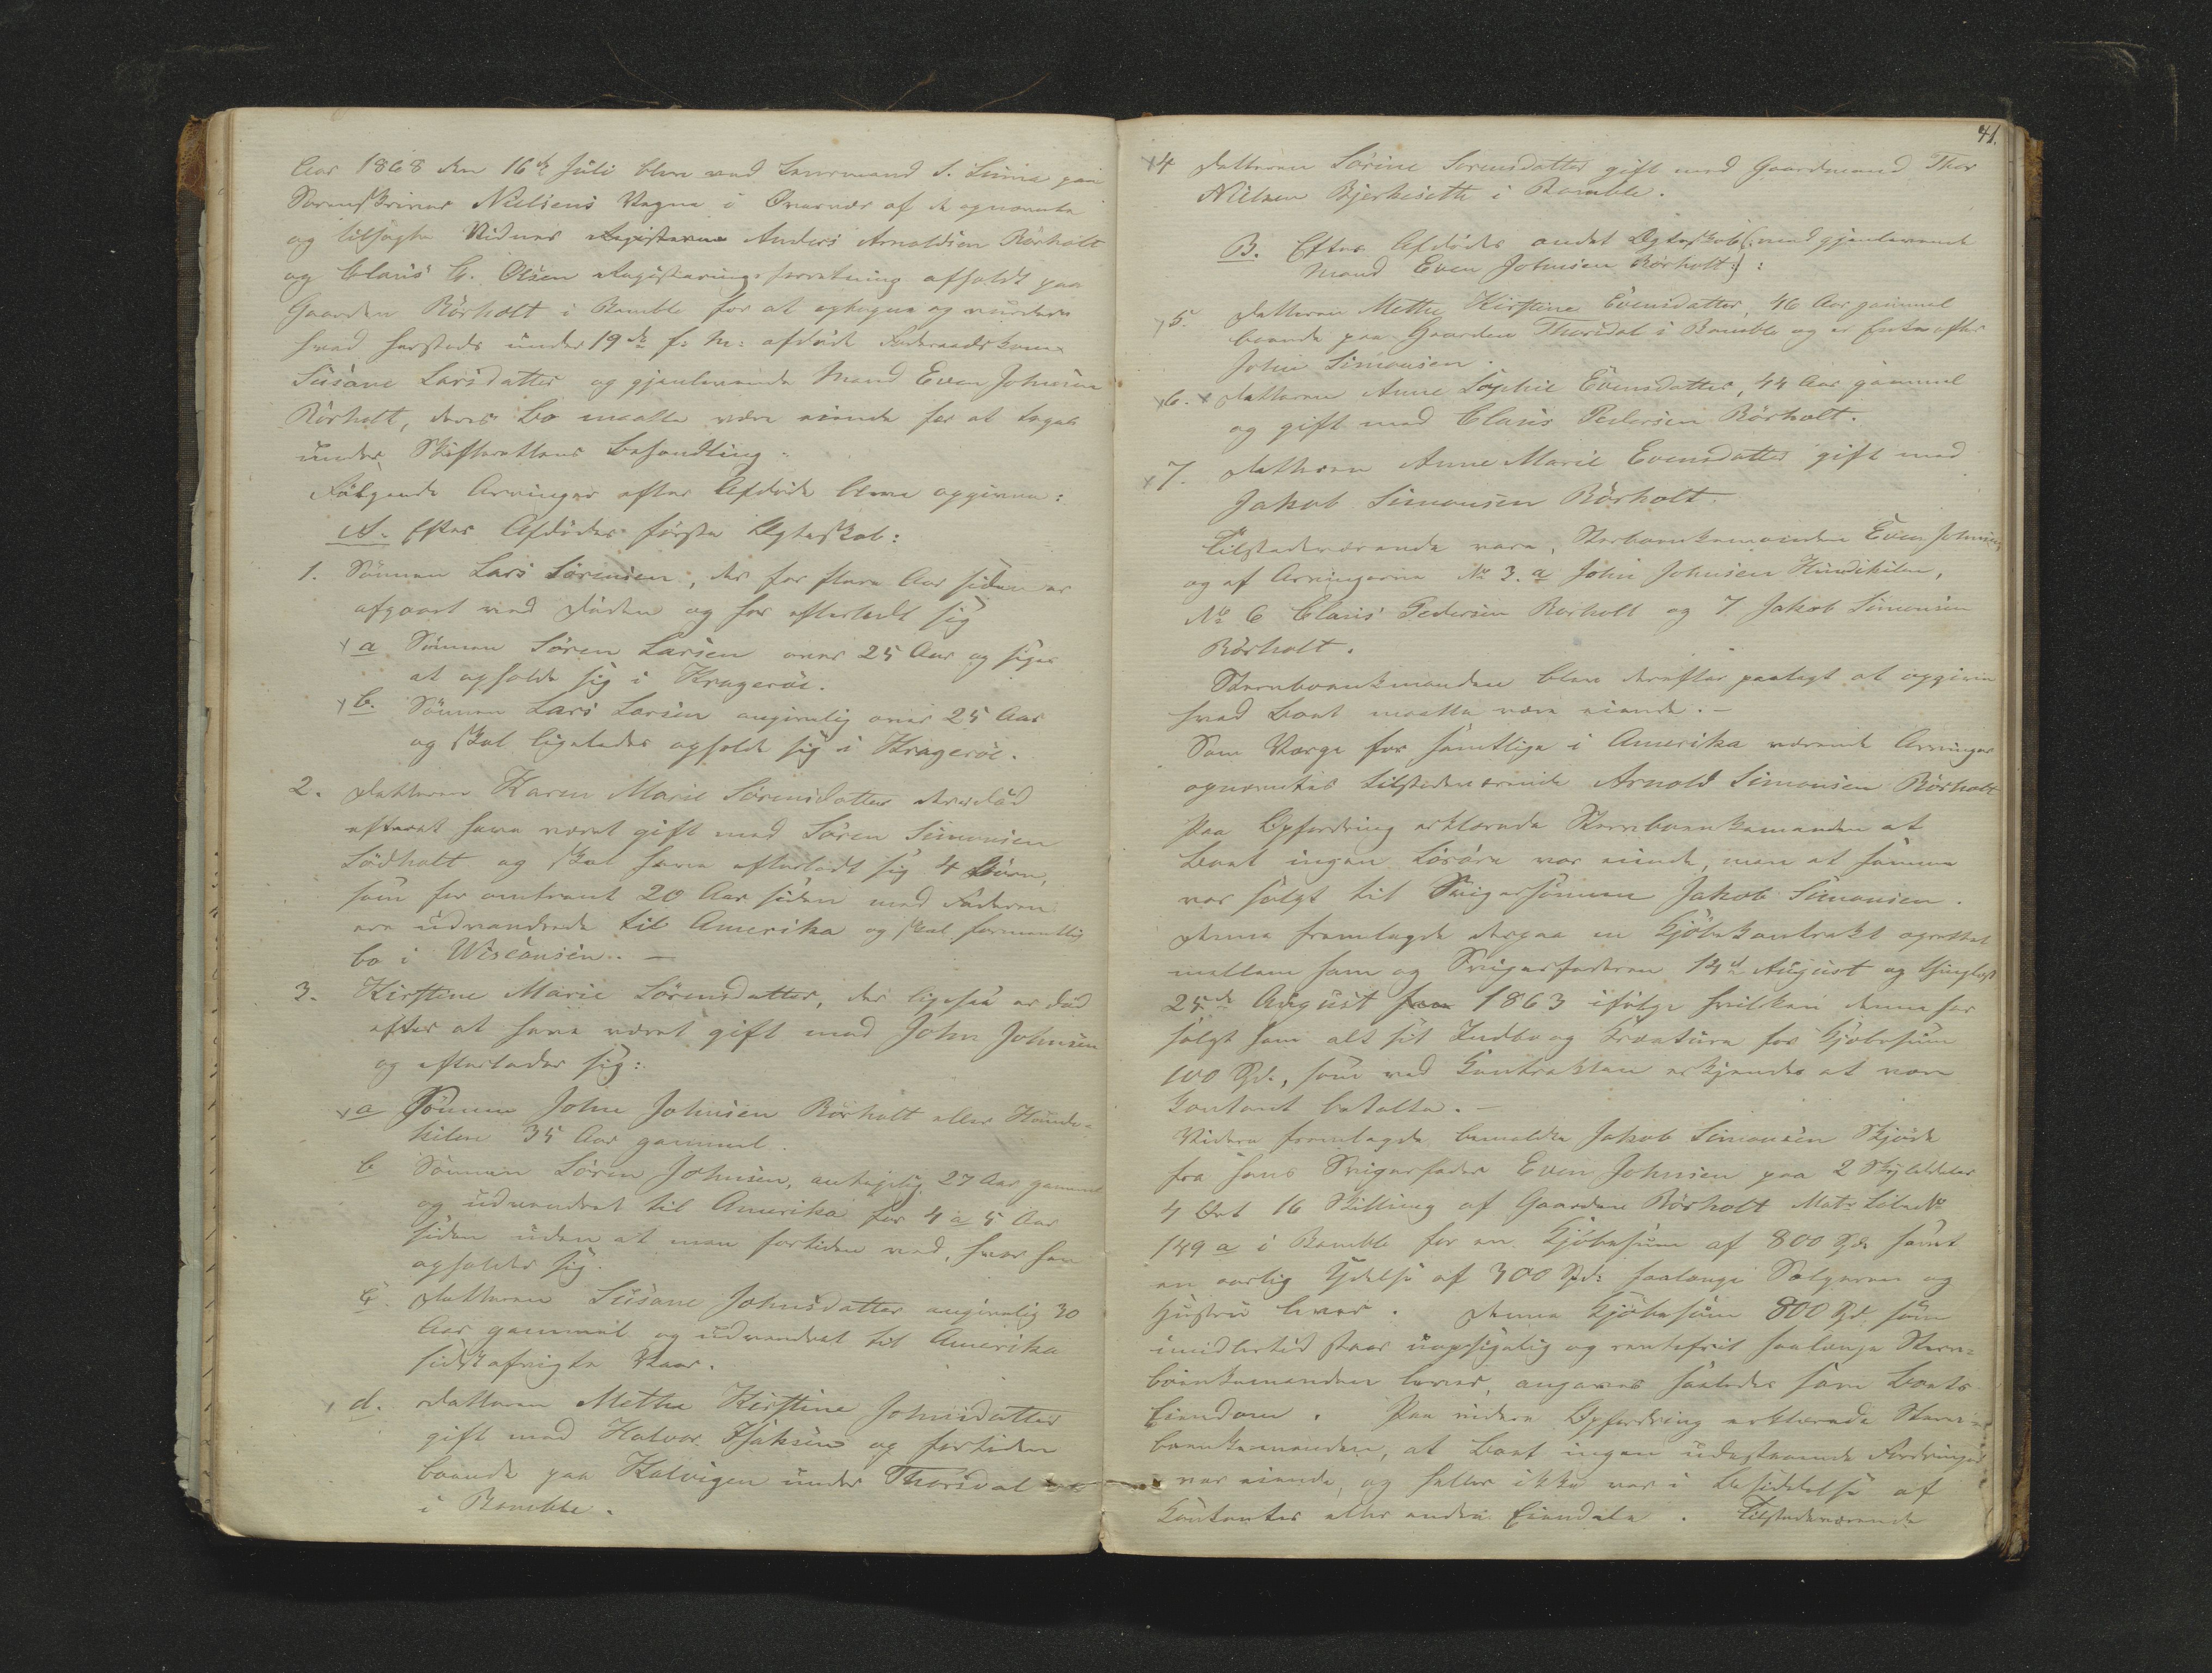 Aar 1868 den 16de Juli blev ved Lensmand S. Linna paa
Sorenskriver Nielsens Vegne i Overvær af de opnævnte
og tilsagte Vidner Anders Arnoldsen Rörholt
og Claus G. Olsen Registreringsforretning afholdt paa
Gaarden Rörholt i Bamble for at optegne og vurdere
hvad hersteds under 19de f: M: afdöde Föderaadskone
Susane Larsdatter og gjenlevende Mand Even Johnsen
Rörholt, deres Bo maatte være eiende for at tages
under Skifterettens Behandling.
Fölgende Arvinger efter Afdöde bleve opgivne:
A. Efter Afdödes förste Ægteskab:
1. Sönnen Lars Sörensen, der for flere Aar siden er
afgaaet ved Döden og har efterladt sig
a Sönnen Sören Larsen over 25 Aar og siges
at opholde sig i Krageröe.
b. Sönnen Lars Larsen angivelig over 25 Aar
og skal ligeledes opholde sig i Krageröe.
2. Datteren Karen Marie Sörensdatter der er död
efterat have været gift med Sören Simonsen
Lödholt og skal have efterladt sig 4 Börn,
som for omtrent 20 Aar siden med Faderen
ere udvandrede til Amerika og skal formentlig
bo i Wisconsin. —
3. Kirstine Marie Sörensdatter, der ligesaa er död
efter at have været gift med John Johnsen
og efterlader sig:
a Sönnen John Johnsen Rörholt eller Hunde-
kilen 35 Aar gammel.
b Sönnen Sören Johnsen, antagelig 27 Aar gammel
og udvandret til Amerika for 4 a 5 Aar
siden uden at man fortiden ved, hvor han
opholder sig.
c. Datteren Susane Johnsdatter angivelig 30
Aar gammel og udvandret til Amerika
sidstafvigte Vaar.
d. Datteren Methe Kirstine Johnsdatter
gift med Halvor Isaksen og fortiden
boende paa Kalvigen under Thorsdal
i Bamble.
41.
4 Datteren Sörine Sorensdatter gift med Gaardmand Thor
Nilsen Bjerkeseth i Bamble.
B. Efter Afdödes andet Ægteskab (: med gjenlevende
Mand Even Johnsen Rörholt :) :
5. Datteren Methe Kirstine Evensdatter, 46 Aar gammel
boende paa Gaarden Thorsdal i Bamble og er Enke efter
John Simonsen.
6. Datteren Anne Sophie Evensdatter, 44 Aar gammel
og gift med Claus Pedersen Rörholt.
7. Datteren Anne Marie Evensdatter gift med
Jakob Simonsen Rörholt.
Tilstedeværende vare, Stervboenkemanden Even Johnsen
og af Arvingerne No 3. a John Johnsen Hundekilen,
No 6 Claus Pedersen Rorholt og 7. Jakob Simonsen
Rörholt.
Stervboenkemanden blev derefter paalagt at opgive
hvad Boet maatte være eiende. —
Som Værge for samtlige i Amerika værende Arvinger
opnævntes tilstedeværende Arnold Simonsen Rörholt
Paa Opfordring erklærede Stervboenkemanden at
Boet ingen Lösöre var eiende, men at samme
var solgt til Svigersönnen Jakob Simonsen.
Denne fremlagde derpaa en Kjöbekontrakt oprettet
mellem ham og Svigerfaderen 14de August og thinglyst
25de August 1863 ifölge hvilken denne har
solgt ham alt sit Indbo og Kreature for Kjöbesum
100 Spd., som ved Kontrakten erkjendes at være
kontant betalte. —
Videre fremlagde bemeldte Jakob Simonsen Skjöde
fra hans Svigerfader Even Johnsen paa 2 Skylddaler
4 Ort 16 Skilling af Gaarden Rörholt Matr. Löbe No
149 a i Bamble for en Kjöbesum af 800 Spd. samt
en aarlig Ydelse af 300 Spd: saalænge Sælgeren og
Hustru lever. Denne Kjöbesum 800 Spd. som
imidlertid staar uopsigelig og rentefrit saalænge Sterv-
boenkemanden lever, angaves saaledes som Boets
Eiendom. Paa videre Opfordring erklærede Sterv-
boenkemanden, at Boet ingen udestaaende Fordringer
var eiende, og heller ikke var i Besiddelse af
Kontanter eller andre Eiendele. Tilstedeværende